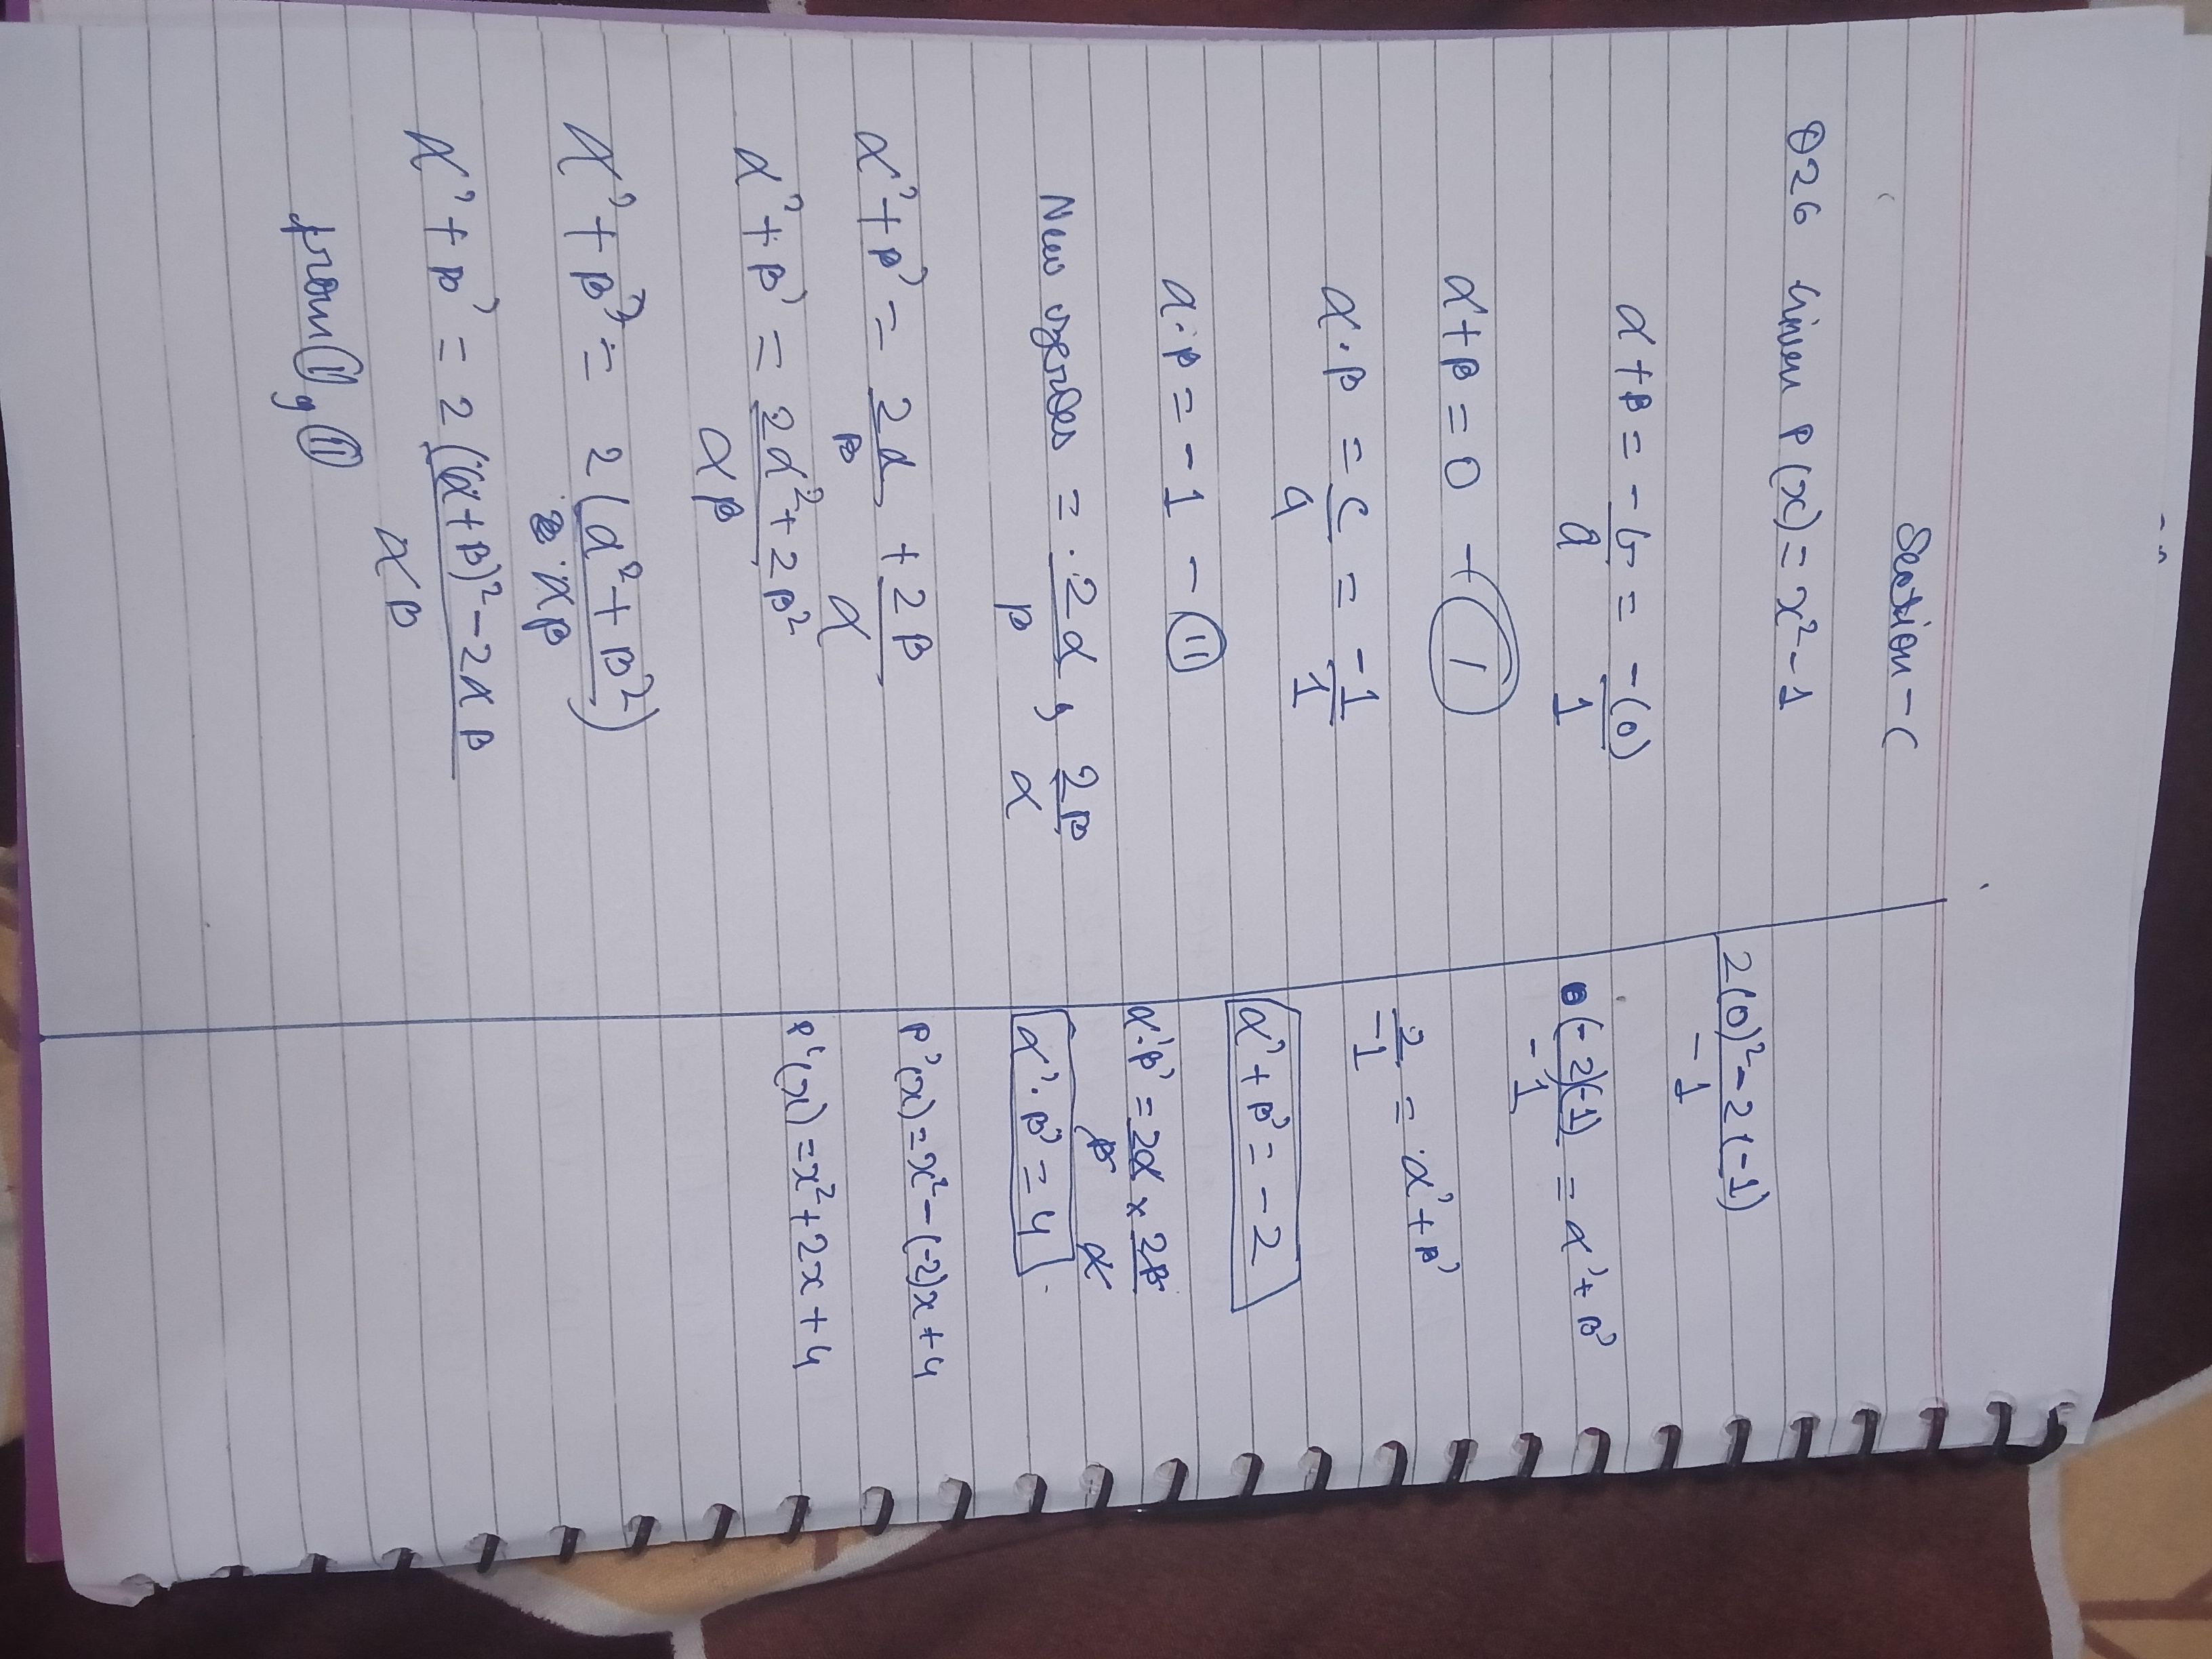 Section-C
Q26 Given P(x) = x² - 1
α + β = -b/a = -(0)/1
α + β = 0 - (I)
α · β = c/a = -1/1
α · β = -1 - (II)
New zeroes = 2α/β , 2β/α
α' + β' = 2α/β + 2β/α
α' + β' = 2α² + 2β² / αβ
α' + β' = 2(α² + β²) / αβ
α' + β' = 2((α + β)² - 2αβ / αβ
from (I), (II)
2(0)² - 2(-1) / -1
(-2)(-1) / -1 = α' + β'
2/-1 = α' + β'
α' + β' = -2
α' · β' = 2α/β × 2β/α
α' · β' = 4
P'(x) = x² - (-2)x + 4
P'(x) = x² + 2x + 4